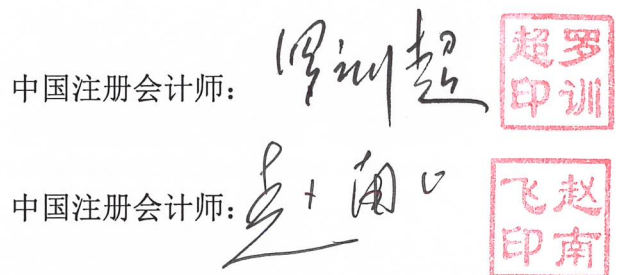 中国注册会计师：罗训超 罗训超印
中国注册会计师：赵南飞 赵南飞印